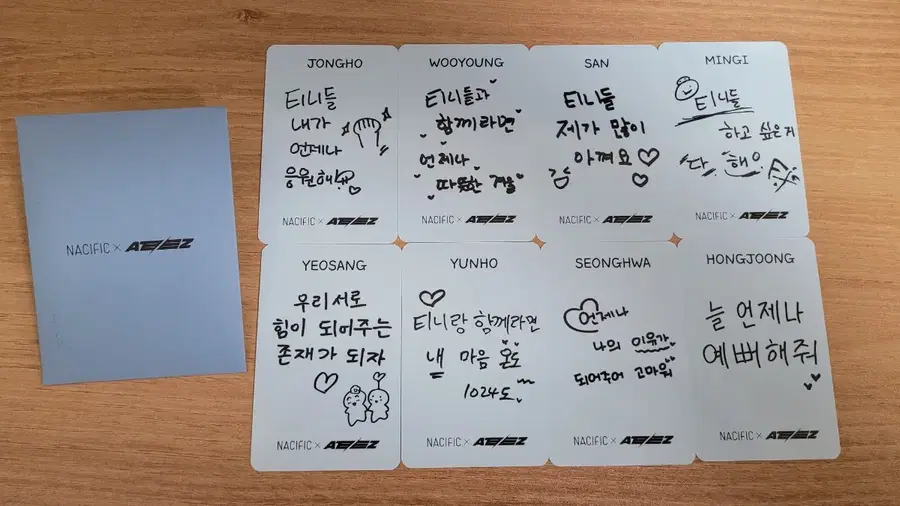 NACIFIC × ATEEZ
JONGHO
티니들
내가
언제나
응원해
NACIFIC × ATEEZ
WOOYOUNG
티니들과
함께라면
언제나
따뜻한 겨울
NACIFIC × ATEEZ
SAN
티니들
제가 많이
아껴요
NACIFIC × ATEEZ
MINGI
티니들
하고 싶은거
다 해
NACIFIC × ATEEZ
YEOSANG
우리 서로
힘이 되어주는
존재가 되자
NACIFIC × ATEEZ
YUNHO
티니랑 함께라면
내 마음 온도
1024도
NACIFIC × ATEEZ
SEONGHWA
언제나
나의 이유가
되어주어 고마워
NACIFIC × ATEEZ
HONGJOONG
늘 언제나
예뻐해줘
NACIFIC × ATEEZ